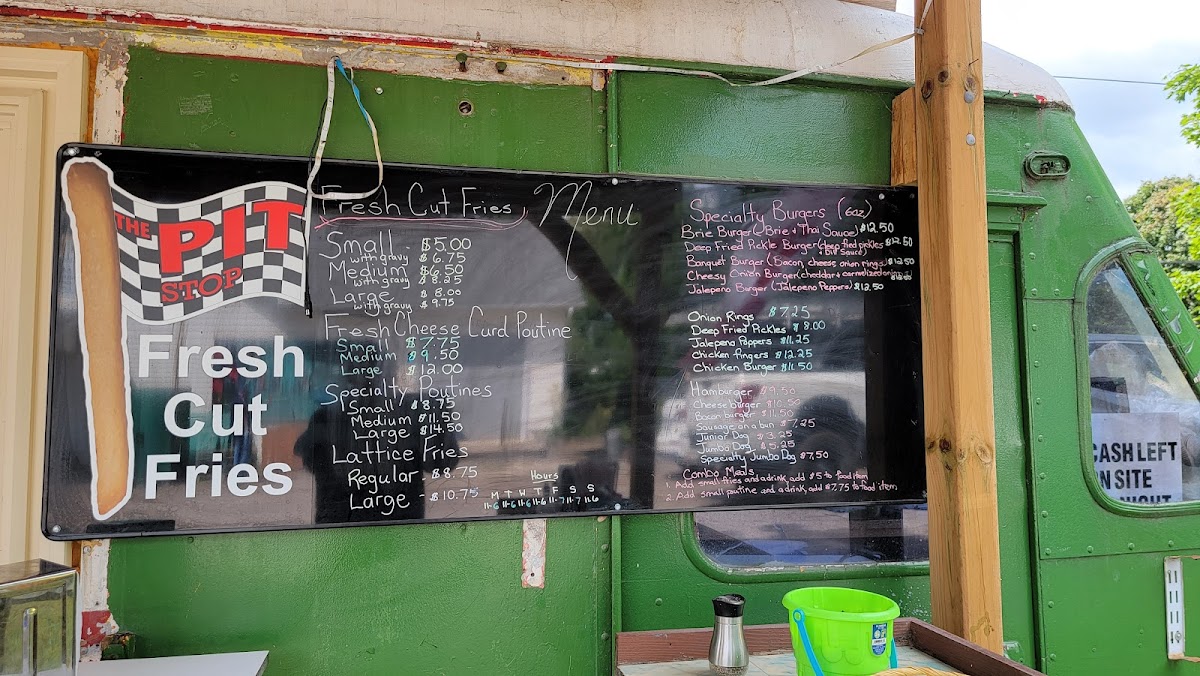 THE
PIT
STOP
Fresh
Cut
Fries
Fresh Cut Fries
Menu
Small - $5.00
with gravy $6.75
Medium $6.50
with gravy $8.25
Large $8.00
with gravy $9.75
Fresh Cheese Curd Poutine
Small $7.75
Medium $9.50
Large $12.00
Specialty Poutines
Small $8.75
Medium $11.50
Large $14.50
Lattice Fries
Regular - $8.75
Large - $10.75
Hours
M T W T F S S
11-6 11-6 11-6 11-6 11-7 11-7 11-6
Specialty Burgers (6oz)
Brie Burger (Brie + Thai Sauce) $12.50
Deep Fried Pickle Burger (deep fied pickles $12.50
Banquet Burger (Bacon, cheese, onion rings) $12.50
Cheesy Onion Burger (cheddar +
Jalapeno Burger (Jalapeno Poppers) $12.50
Onion Rings $7.25
Deep Fried Pickles $8.00
Jalapeno Poppers $11.25
Chicken fingers $12.25
Chicken Burger $11.50
Hamburger $9.50
Cheese burger $10.50
Bacon burger $11.50
Sausage on a bun $7.25
Junior Dog $3.25
Jumbo Dog $5.25
Specialty Jumbo Dog $7.50
Combo Meals
1. Add small fries and a drink, add $5 to food item
2. Add small poutine and a drink, add $7.75 to food item
CASH LEFT
N SITE